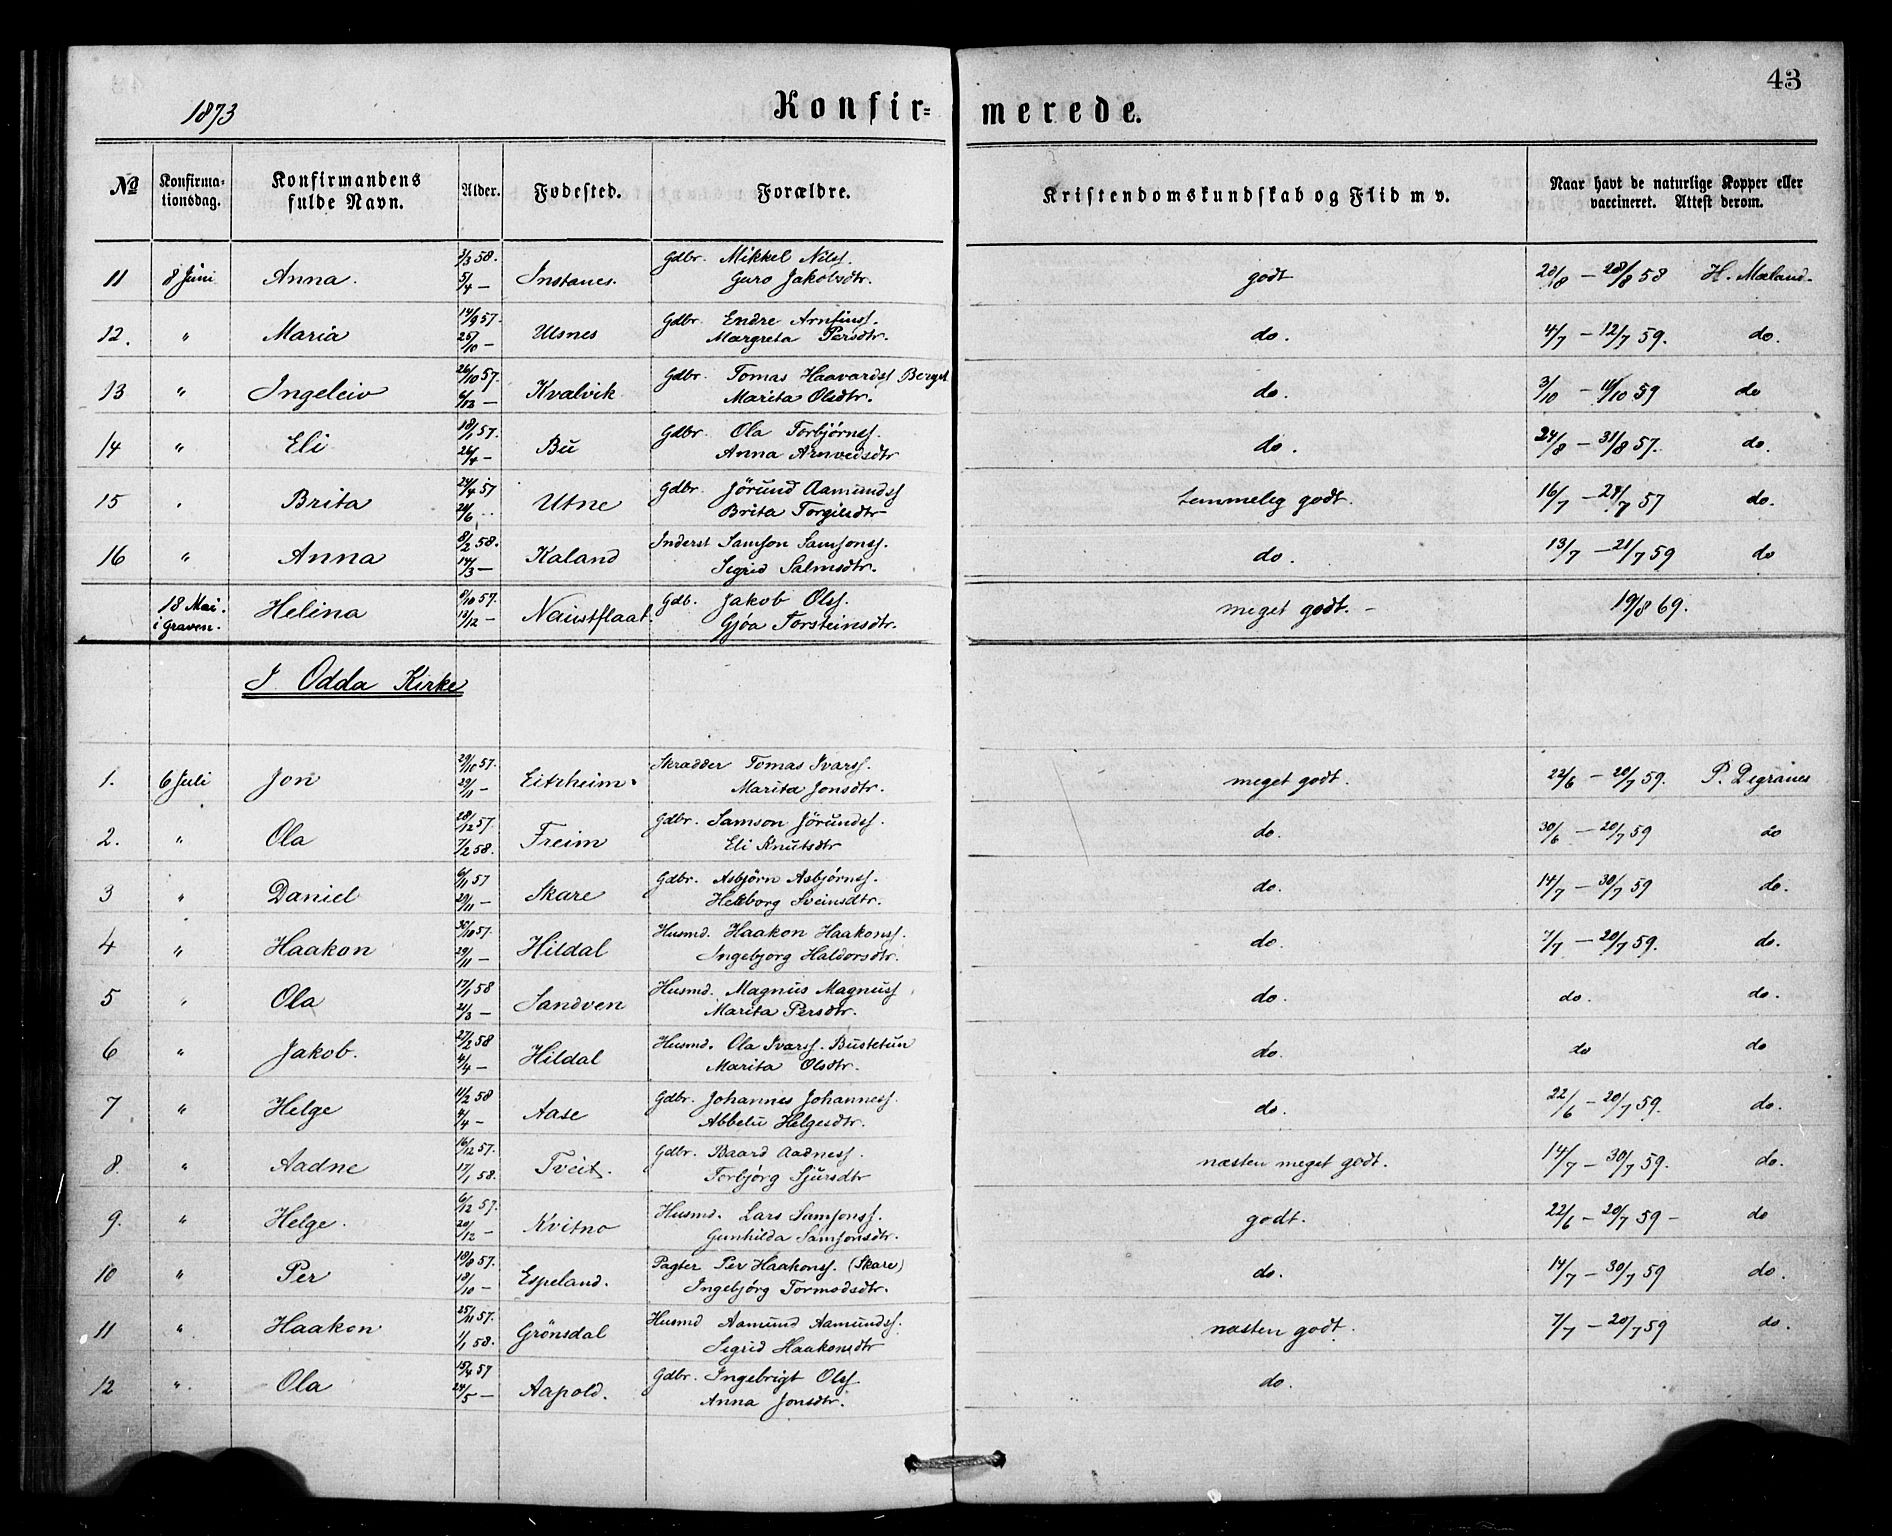 43
1873 Konfir= merede.
No Konfirma-tionsdag. Konfirmandens fulde Navn. Alder. Fødested. Forældre. Kristendomskundskab og Flid m v. Naar havt de naturlige Kopper eller vaccineret. Attest derom.
11 8 Juni Anna. 3/3 58. Instanes. Gdbr. Mikkel Nilss. godt 20/8 – 28/8 58 H. Mæland
5/4 – Guro Jakobsdtr.
12. " Maria 14/9 57. Ulsnes Gdbr. Endre Arnfinss. do. 4/7 – 12/7 59. do.
25/10 – Margreta Persdtr.
13 " Ingeleiv 26/10 57. Kvalvik Gdbr. Tomas Haavardss Berget do. 3/10 – 11/10 59 do
6/12 – Marita Olsdtr.
14 " Eli 18/1 57. Bu Gdbr. Ola Torbjørnss. do. 24/8 – 31/8 57. do.
26/4 – Anna Arnvedsdtr
15 " Brita 24/4 57 Utne Gdbr. Jörund Aamundss temmelig godt. 16/7 – 24/7 57 do.
24/6 .. Brita Torgilsdtr
16 " Anna 8/2 58. Kaland Inderst Samson Samsonss. do. 13/7 – 21/7 59 do
14/3 – Sigrid Salmsdtr.
18 Mai. i Graven. Helina 8/10 57. Naustflaat. Gdb. Jakob Olss. meget godt. – 19/8 69.
13/12 – Gjøa Torsteinsdtr.
I Odda Kirke
1. 6 Juli Jon 29/10 57. Eitrheim. Skrædder Tomas Ivarss. meget godt. 22/6 – 20/7 59. P. Digranes
29/11 – Marita Jonsdtr.
2. " Ola 28/12 57. Freim Gdbr. Samson Jörundss. do. 30/6 – 20/7 59 do
7/2 58. Eli Knutsdtr
3 " Daniel 6/11 57 Skare Gdbr. Asbjörn Asbjörnss. do. 14/7 – 30/7 59 do.
29/11 – Helborg Sveinsdtr.
4 " Haakon 30/10 57. Hildal Husmd. Haakon Haakonss. do. 7/7 – 20/7 59. do.
29/11 – Ingebjorg Haldorsdtr.
5 " Ola 17/1 58 Sandven Husmd. Magnus Magnuss do. do. do.
21/3 – Marita Persdtr.
6 " Jakob. 27/2 58 Hildal Husmd. Ola Ivarss. Bustetun do. do do
4/4 – Marita Olsdtr.
7 " Helge 11/2 58 Aase Gdbr. Johannes Johanness. do. 22/6 – 20/7 59. do.
4/4 – Abbelu Helgesdtr.
8. " Aadne 16/12 57. Tveit Gdbr. Baard Aadness. næsten meget godt. 14/7 – 30/7 59. do.
17/1 58. Torbjørg Sjursdtr
9. " Helge. 6/12 57. Kvitno Husmd. Lars Samsonss. godt. 22/6 – 20/7 59 – do
20/12 – Gunhilda Samsonsdtr.
10 " Per 18/8 57. Espeland. Pagter Per Haakonss. (Skare) do. 14/7 – 30/7 59 do.
18/10 – Ingebjörg Tormodsdtr.
11 " Haakon 25/11 57. Grönsdal Husmd Aamund Aamundss. næsten godt. 7/7 – 20/7 59 do.
1/1 58. Sigrid Haakonsdtr
12 " Ola 15/4 57 Aapold. Gdbr. Ingebrigt Olss do.
24/5 – Anna Jonsdtr.